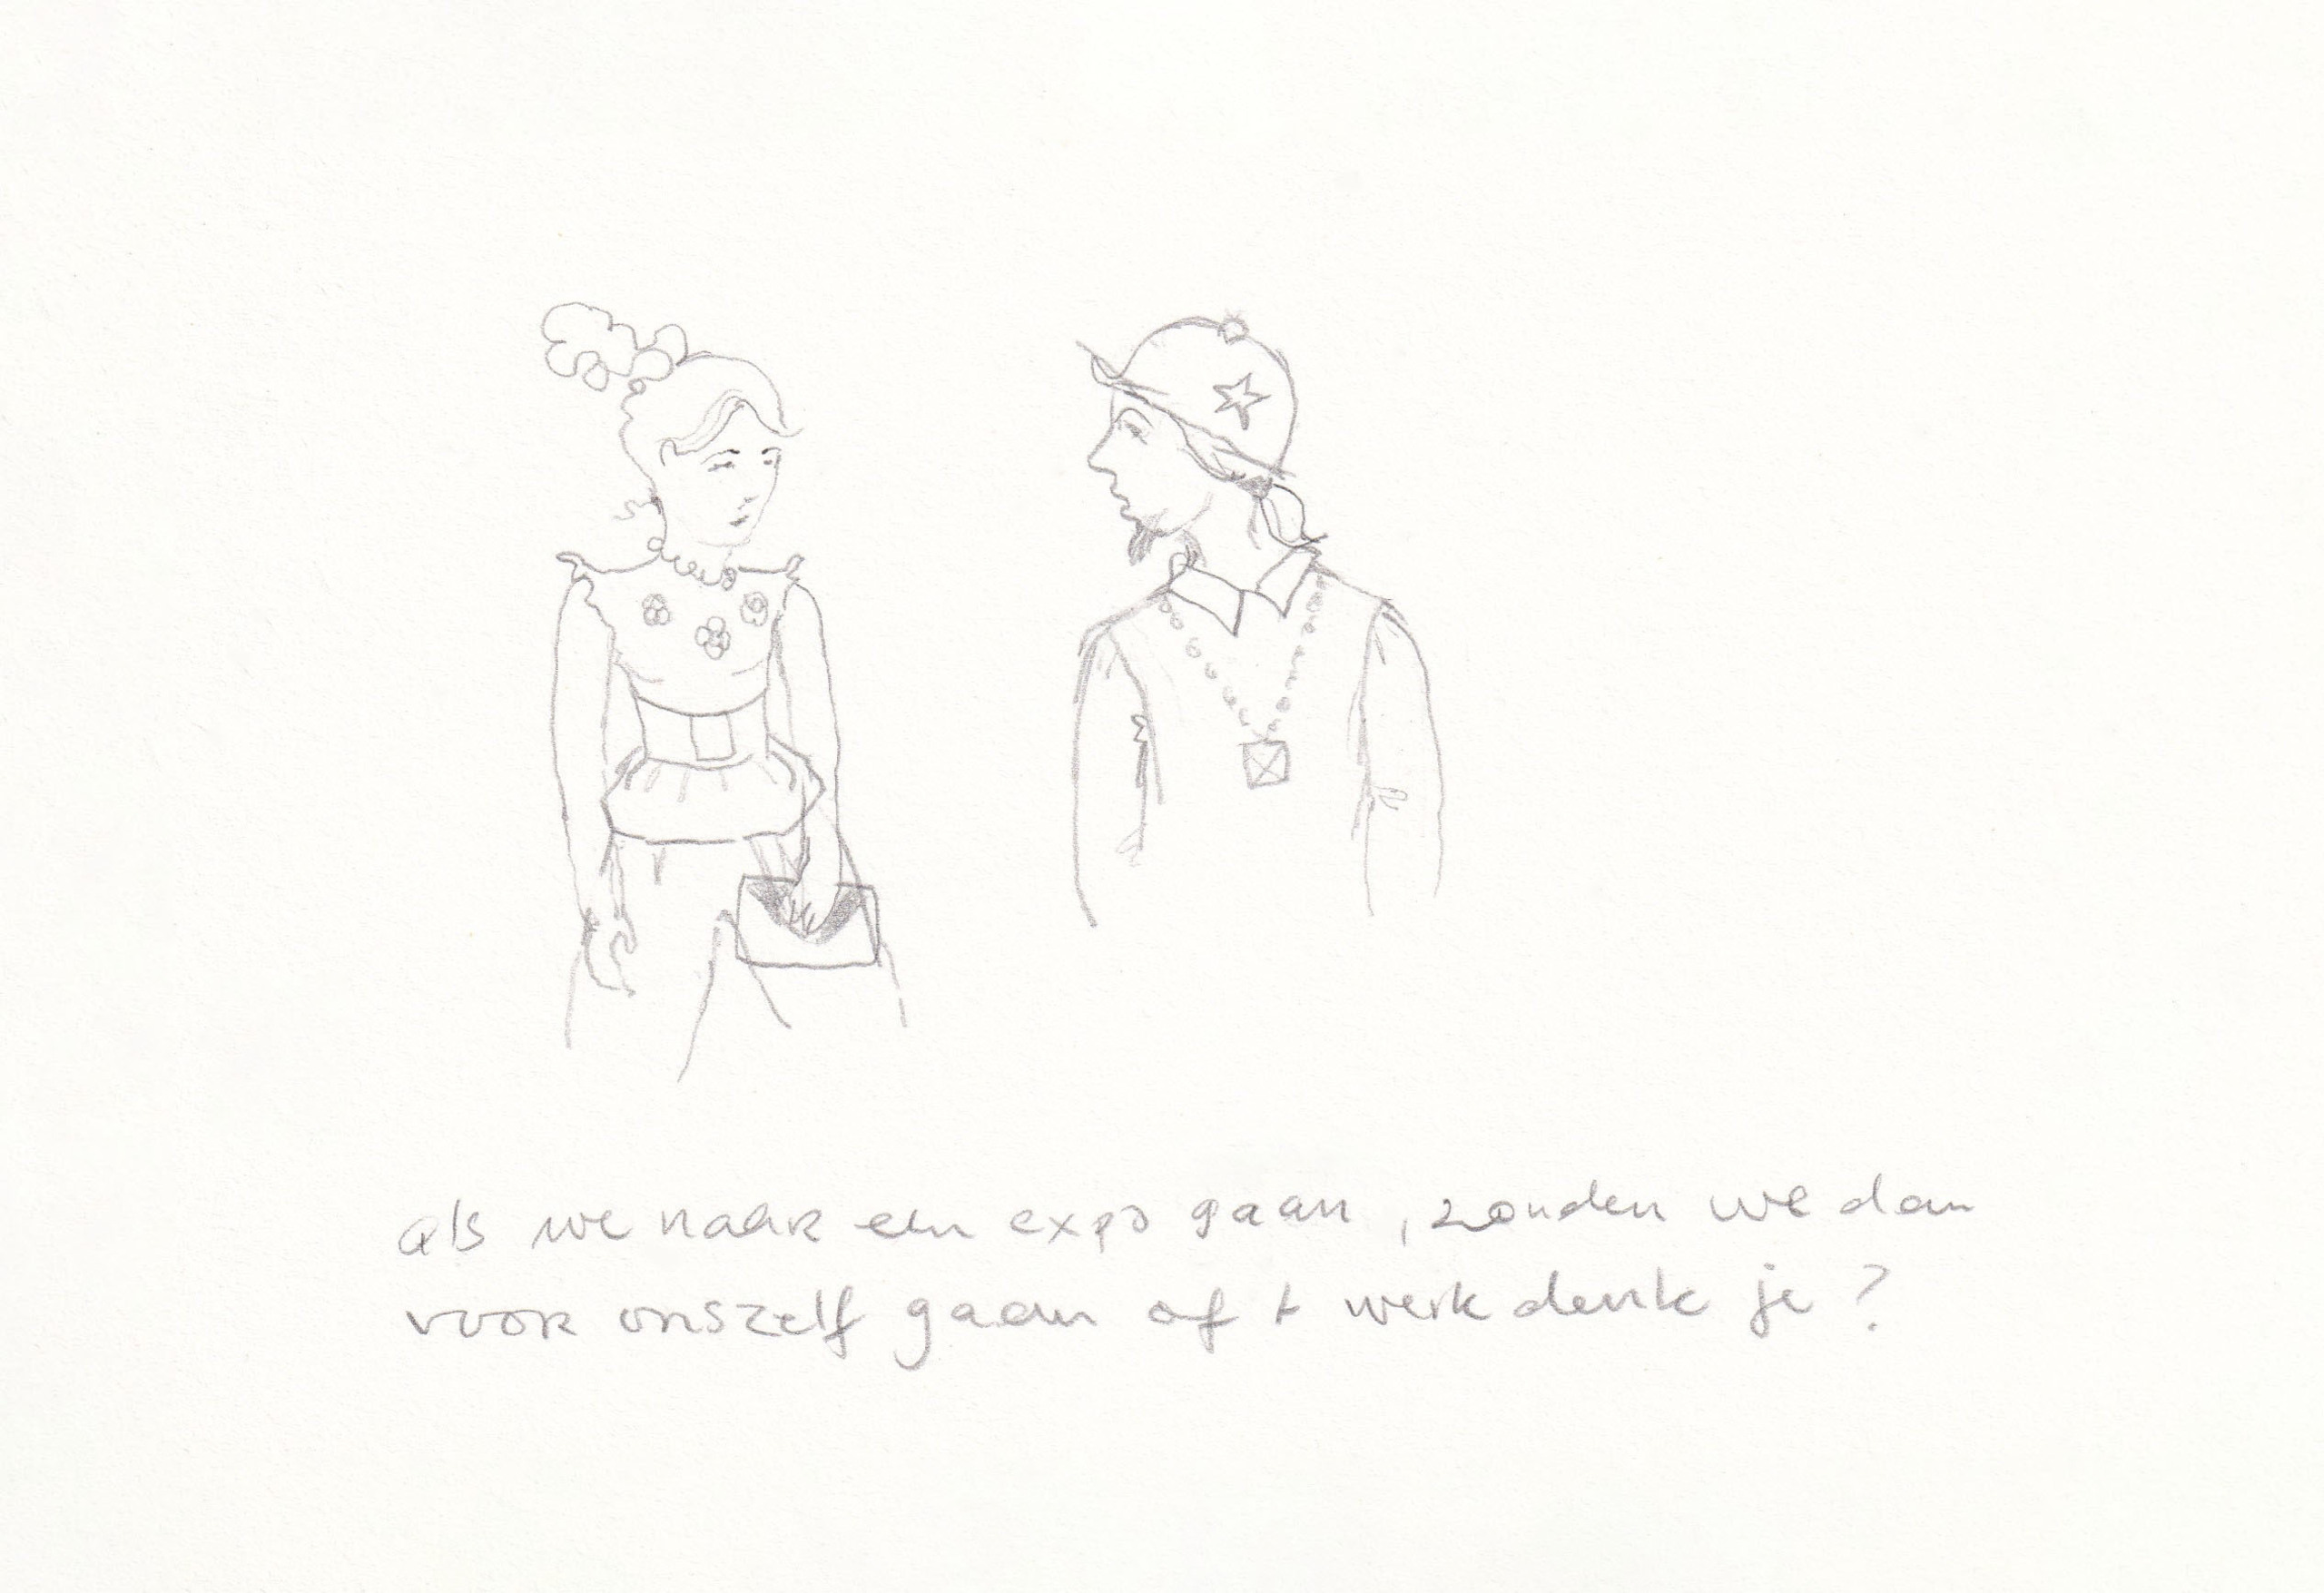 als we naar een expo gaan, zouden we dan
voor onszelf gaan of t werk denk je?